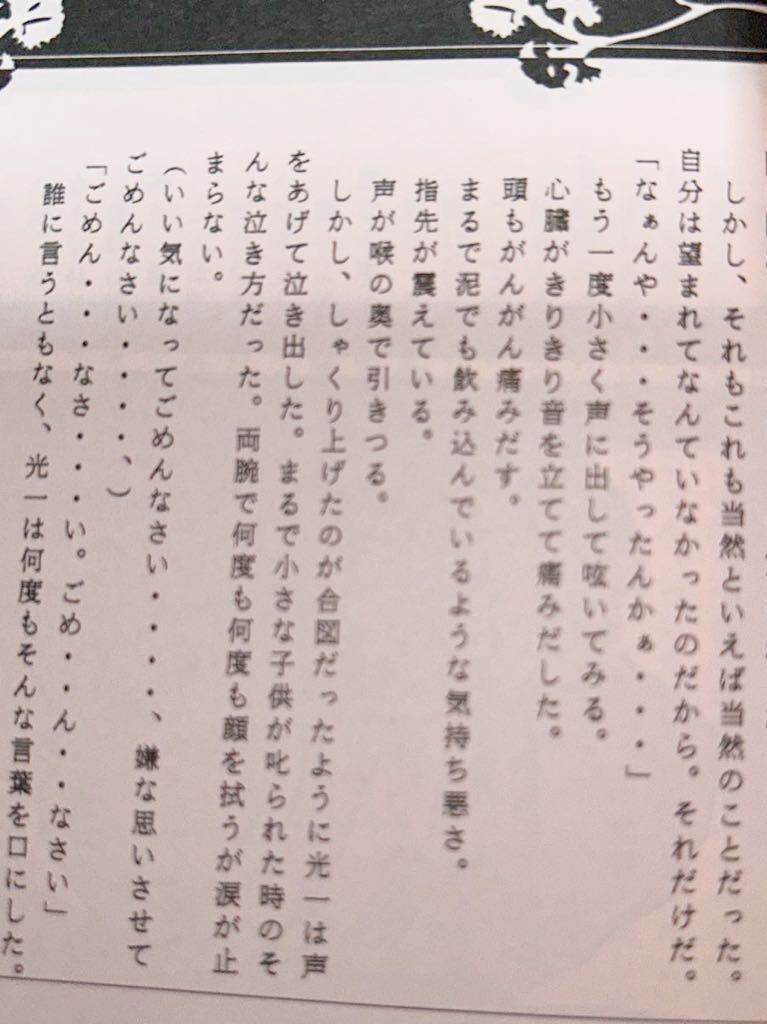 しかし、それもこれも当然といえば当然のことだった。
自分は望まれてなんていなかったのだから。それだけだ。
「なぁんや・・・そうやったんかぁ・・・」
もう一度小さく声に出して呟いてみる。
心臓がきりきり音を立てて痛みだした。
頭もがんがん痛みだす。
まるで泥でも飲み込んでいるような気持ち悪さ。
指先が震えている。
声が喉の奥で引きつる。
しかし、しゃくり上げたのが合図だったように光一は声
をあげて泣き出した。まるで小さな子供が叱られた時のそ
んな泣き方だった。両腕で何度も何度も顔を拭うが涙が止
まらない。
（いい気になってごめんなさい・・・・、嫌な思いさせて
ごめんなさい・・・・、）
「ごめん・・・なさ・・・い。ごめ・・ん・・なさい」
誰に言うともなく、光一は何度もそんな言葉を口にした。